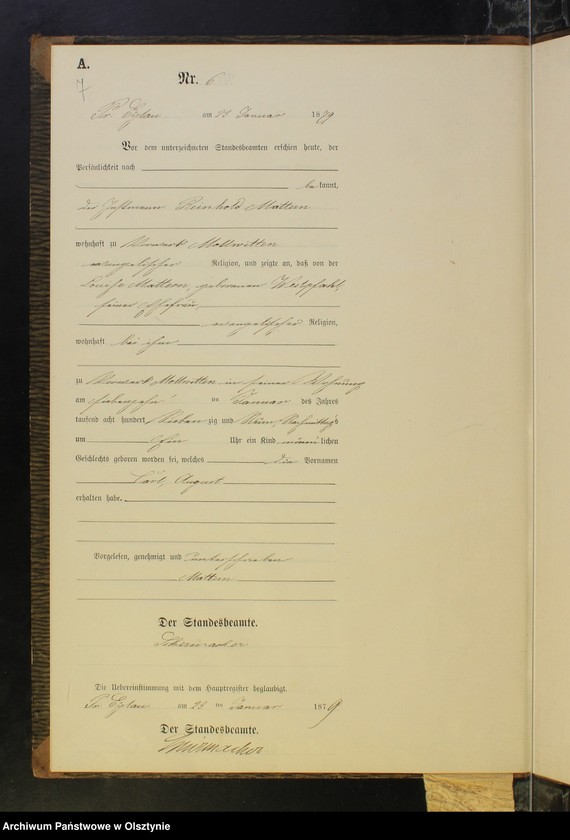 A.
7
Nr. 6
Pr. Eylau am 23 Januar 1879
Vor dem unterzeichneten Standesbeamten erschien heute, der
Persönlichkeit nach
bekannt,
der Reinhold Mattern
wohnhaft zu Vorwerk Mollwitten
evangelischer Religion, und zeigte an, daß von der
Louise Mattern, geborenen Westphahl,
seiner Ehefrau
evangelischer Religion,
wohnhaft bei ihm
zu Vorwerk Mollwitten in seiner Wohnung
am siebenzehn ten Januar des Jahres
tausend acht hundert siebenzig und Neun, Nachmittags
um Uhr ein Kind männlichen
Geschlechts geboren worden sei, welches die Vornamen
Carl, August
erhalten habe.
Vorgelesen, genehmigt und unterschrieben
Mattern
Der Standesbeamte.
Die Uebereinstimmung mit dem Hauptregister beglaubigt.
Pr. Eylau am 23 ten Januar 1879
Der Standesbeamte.
Archiwum Państwowe w Olsztynie